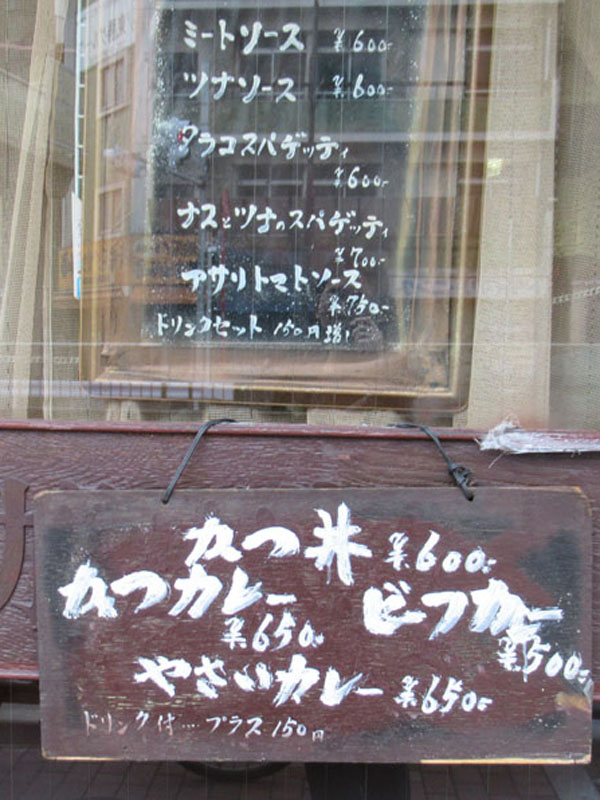 ミートソース ¥600-
ツナソース ¥600-
タラコスパゲッティ
¥600-
ナスとツナのスパゲッティ
¥700-
アサリトマトソース
¥750-
ドリンクセット 150円増
かつ丼 ¥600-
かつカレー ビーフカレー
¥650- ¥500-
やさいカレー ¥650-
ドリンク付…プラス150円